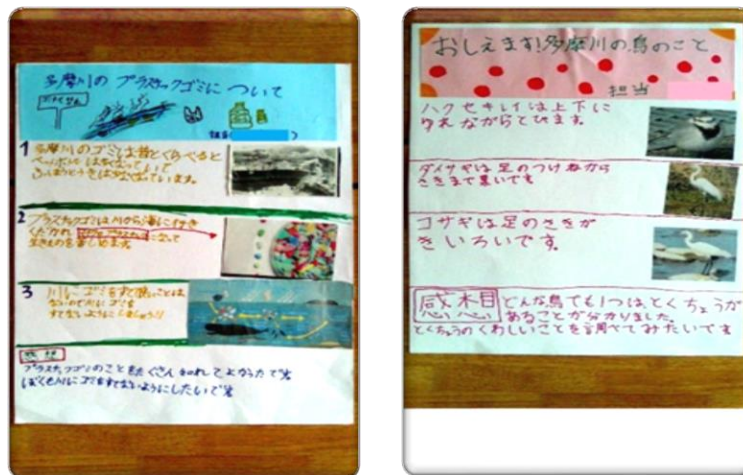 多摩川のプラスチックゴミについて
1 多摩川のゴミは昔とくらべると
ペットボトルは
2 プラスチックゴミは川から海に行き
くだかれ になって
生きものを苦しめます。
3 川にゴミをすて
ないので川にゴミを
すてないようにしましょう!!
感想
プラスチックゴミのことをたくさん知れてよかったです
ぼくも川にゴミをすてないようにしたいです
おしえます!多摩川の鳥のこと
担当
ハクセキレイは上下に
ゆれながらとびます。
ダイサギは足のつけねから
さきまで黒いです
コサギは足のさきが
きいろいです。
感想 どんな鳥でも1つはとくちょうが
あることが分かりました。
とくちょうのくわしいことを調べてみたいです